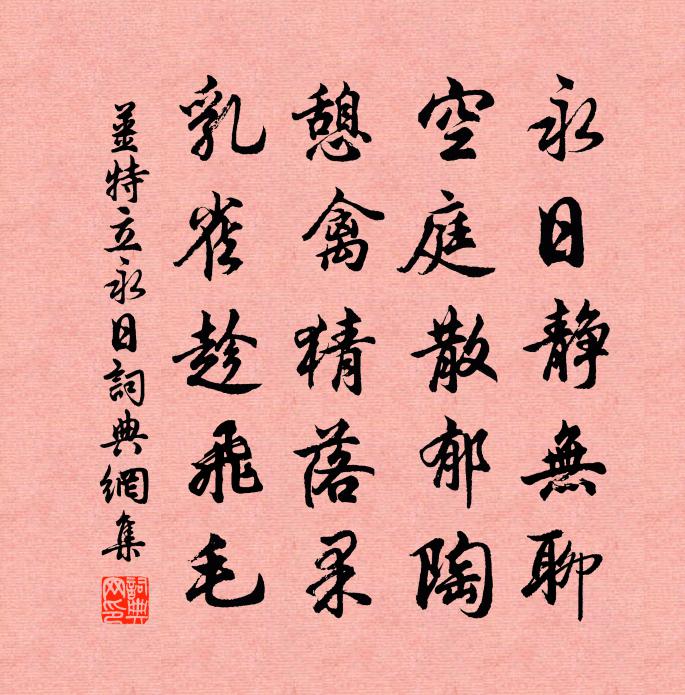 永日静無聊
空庭散郁陶
憩禽猜落果
乳雀趁飛毛
姜特立永日詞典網集
詞典網印